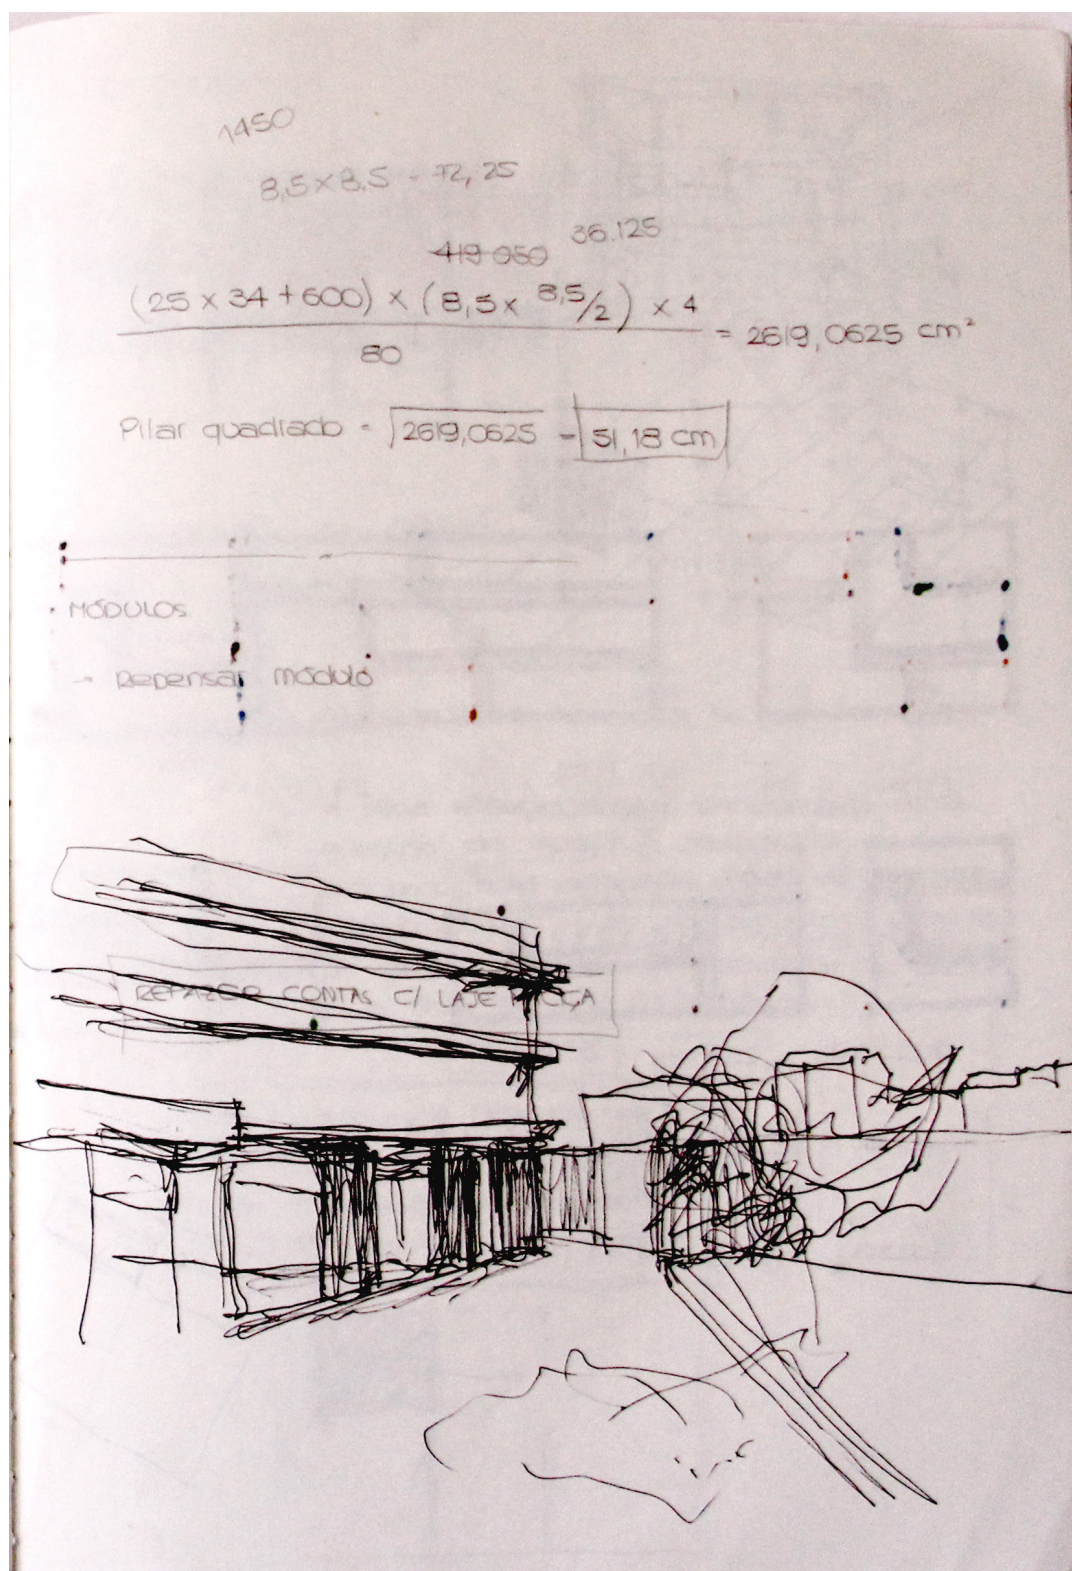 1450
8,5 × 8,5 = 72,25
419 050 36.125
(25 × 34 + 600) × (8,5 × 8,5/2) × 4
80
= 2619,0625 cm²
Pilar quadrado = √2619,0625 = 51,18 cm
MÓDULOS
→ Repensar módulo
REFAZER CONTAS C/ LAJE